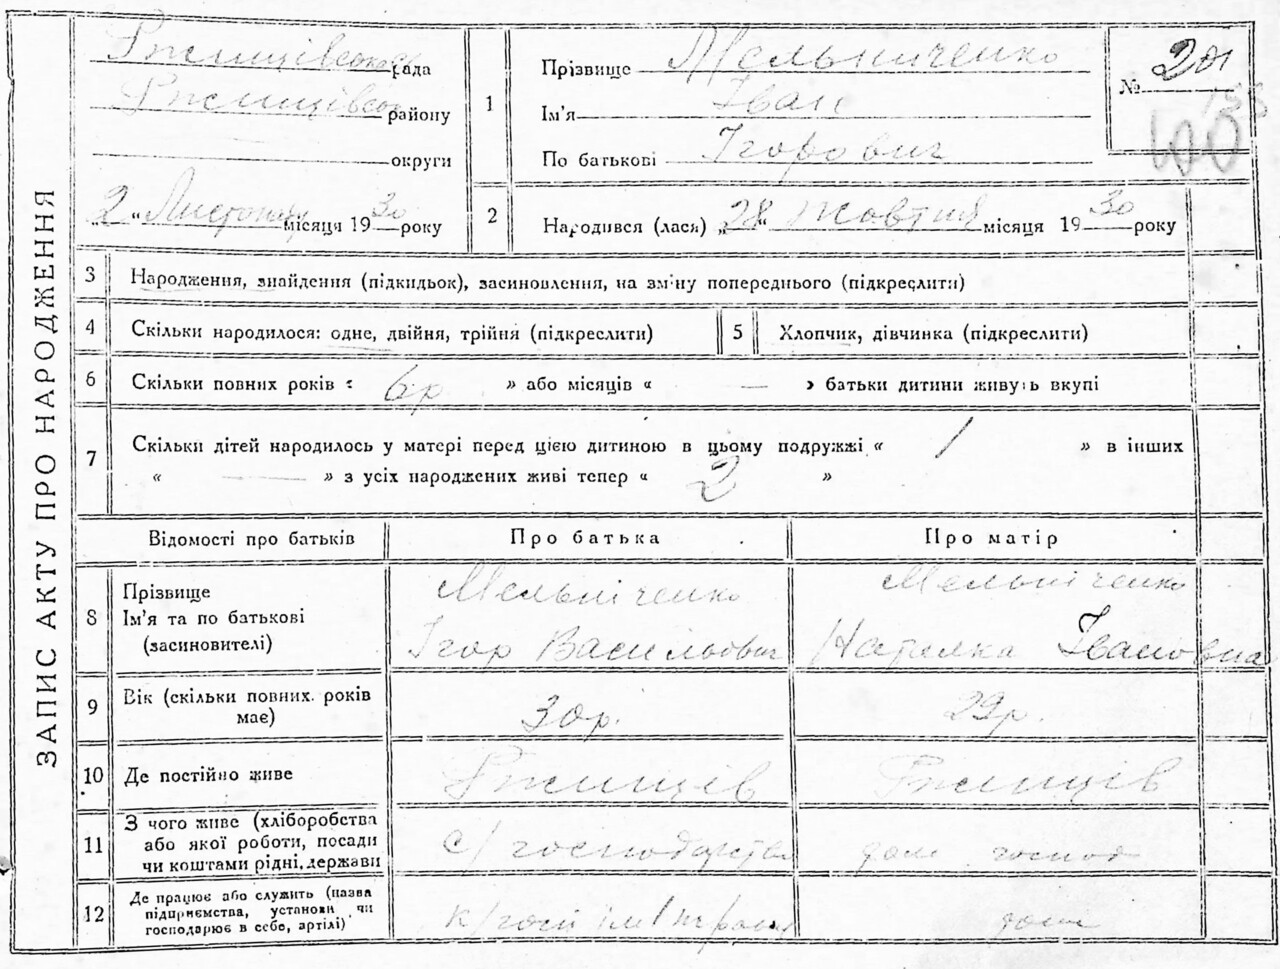 ЗАПИС АКТУ ПРО НАРОДЖЕННЯ
Ржищівська рада
Ржищівськ району
округи
2 " Листопаду місяця 1930 року
1
Прізвище Мельниченко
Ім'я Іван
По батькові Ігорович
№ 201
2
Народився (лася) „28“ Жовтня місяця 1930 року
3 Народження, знайдення (підкидьок), засиновлення, на зміну попереднього (підкреслити)
4 Скільки народилося: одне, двійня, трійня (підкреслити)
5 Хлопчик, дівчинка (підкреслити)
6 Скільки повних років « 6 р » або місяців « — » батьки дитини живуть вкупі
7 Скільки дітей народилось у матері перед цією дитиною в цьому подружжі « 1 » в інших
« — » з усіх народжених живі тепер « 2 »
Відомості про батьків Про батька Про матір
8 Прізвище Мельніченко Мельніченко
Ім'я та по батькові Ігор Васильович Наталка Івановна
(засиновителі)
9 Вік (скільки повних років має) 30р. 29р.
10 Де постійно живе Ржищів Ржищів
11 З чого живе (хліборобства або якої роботи, посади чи коштами рідні, держави с/господарства дом господ
12 Де працює або служить (назва підприємства, установи чи господарює в себе, артілі) к/госп ім. дом